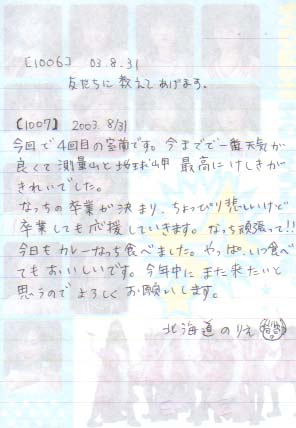 [1006] 03.8.31
友だちに教えてあげます。
【1007】 2003. 8/31
今回で4回目の室蘭です。今までで一番天気が
良くて測量山と地球岬 最高にけしきが
きれいでした。
なっちの卒業が決まり、ちょっぴり悲しいけど
卒業しても応援していきます。なっち頑張って!!
今日もカレーなっち食べました。やっぱ、いつ食べ
てもおいしいです。今年中にまた来たいと
思うのでよろしくお願いします。
北海道のりえ